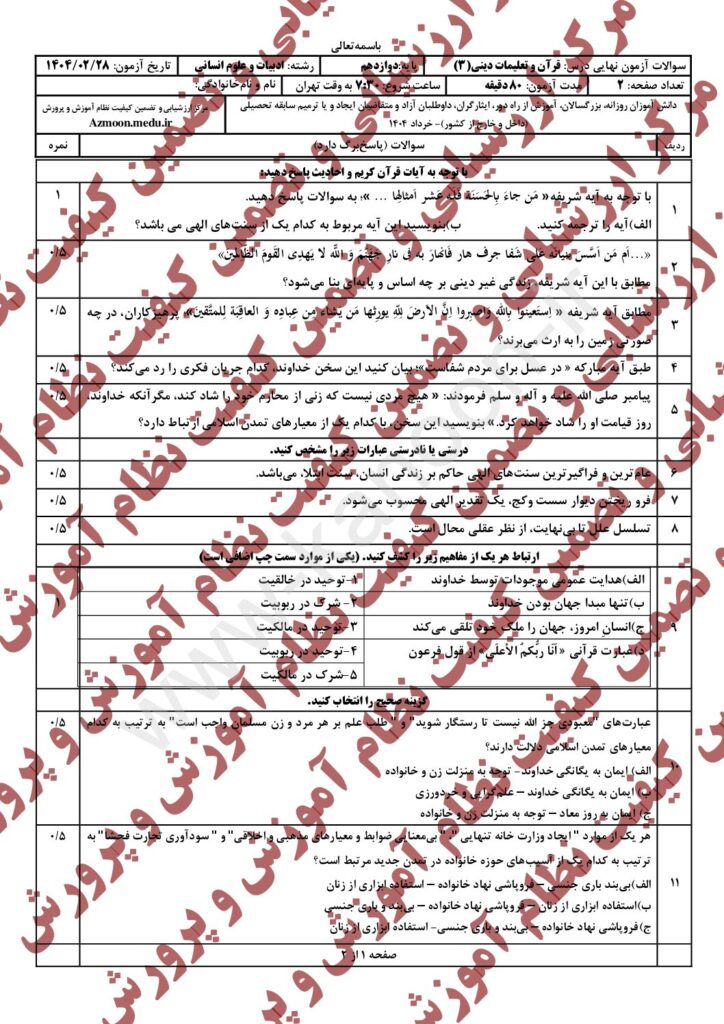 باسمه‌تعالی
سوالات آزمون نهایی درس: قرآن و تعلیمات دینی(۳) پایه: دوازدهم رشته: ادبیات و علوم انسانی تاریخ آزمون: ۱۴۰۴/۰۲/۲۸
تعداد صفحه: ۲ مدت آزمون: ۸۰ دقیقه ساعت شروع: ۷:۳۰ به وقت تهران نام و نام‌خانوادگی:
دانش آموزان روزانه، بزرگسالان، آموزش از راه دور، ایثارگران، داوطلبان آزاد و متقاضیان ایجاد و یا ترمیم سابقه تحصیلی
(داخل و خارج از کشور)- خرداد ۱۴۰۴
مرکز ارزشیابی و تضمین کیفیت نظام آموزش و پرورش
Azmoon.medu.ir
ردیف سوالات (پاسخ‌برگ دارد) نمره
با توجه به آیات قرآن کریم و احادیث پاسخ دهید:
۱ با توجه به آیه شریفه« مَن جاءَ بِالحَسَنَة فَلَهُ عَشر اَمثالِها ... »؛ به سوالات پاسخ دهید. ۱
الف)آیه را ترجمه کنید. ب)بنویسید این آیه مربوط به کدام یک از سنت‌های الهی می باشد؟
۲ «...اَم مَن اَسَّسَ بُنیانَه عَلَی شَفا جرف هار فَانهارَ به فی نارِ جَهَنَّمَ وَ اللَّه لا یَهدِی القَومَ الظّالِمینَ» ۰/۵
مطابق با این آیه شریفه، زندگی غیر دینی بر چه اساس و پایه‌ای بنا می‌شود؟
۳ مطابق آیه شریفه « اِستَعینوا بِاللَّه وَاصبِروا اِنَّ الاَرضَ لِلّهِ یورِثها مَن یَشاء من عِباده وَ العاقِبَة لِلمتَّقینَ»، پرهیزکاران، در چه ۰/۵
صورتی زمین را به ارث می‌برند؟
۴ طبق آیه مبارکه « در عسل برای مردم شفاست»؛ بیان کنید این سخن خداوند، کدام جریان فکری را رد می‌کند؟ ۰/۵
۵ پیامبر صلی الله علیه و آله و سلم فرمودند: « هیچ مردی نیست که زنی از محارم خود را شاد کند، مگرآنکه خداوند، ۰/۵
روز قیامت او را شاد خواهد کرد.» بنویسید این سخن، با کدام یک از معیارهای تمدن اسلامی ارتباط دارد؟
درستی یا نادرستی عبارات زیر را مشخص کنید.
۶ عام‌ترین و فراگیرترین سنت‌های الهی حاکم بر زندگی انسان، سنت ابتلا، می‌باشد. ۰/۵
۷ فرو ریختن دیوار سست وکج، یک تقدیر الهی محسوب می‌شود. ۰/۵
۸ تسلسل علل تا بی‌نهایت، از نظر عقلی محال است. ۰/۵
ارتباط هر یک از مفاهیم زیر را کشف کنید. (یکی از موارد سمت چپ اضافی است)
۹ الف)هدایت عمومی موجودات توسط خداوند ۱-توحید در خالقیت ۱
ب)تنها مبدا جهان بودن خداوند ۲- شرک در ربوبیت
ج)انسان امروز، جهان را ملک خود تلقی می‌کند ۳-توحید در مالکیت
د)عبارت قرآنی « اَنَا رَبُّکُمُ الاَعلَی» از قول فرعون ۴-توحید در ربوبیت
۵-شرک در مالکیت
گزینه صحیح را انتخاب کنید.
۱۰ عبارت‌های "معبودی جز الله نیست تا رستگار شوید" و " طلب علم بر هر مرد و زن مسلمان واجب است" به ترتیب به کدام ۰/۵
معیارهای تمدن اسلامی دلالت دارند؟
الف) ایمان به یگانگی خداوند- توجه به منزلت زن و خانواده
ب) ایمان به یگانگی خداوند – علم‌گرایی و خردورزی
ج) ایمان به روز معاد – توجه به منزلت زن و خانواده
۱۱ هر یک از موارد " ایجاد وزارت خانه تنهایی "، " بی‌معنایی ضوابط و معیارهای مذهبی و اخلاقی" و " سودآوری تجارت فحشا" به ۰/۵
ترتیب به کدام یک از آسیب‌های حوزه خانواده در تمدن جدید مرتبط است؟
الف)بی‌بند باری جنسی – فروپاشی نهاد خانواده – استفاده ابزاری از زنان
ب)استفاده ابزاری از زنان – فروپاشی نهاد خانواده – بی‌بند و باری جنسی
ج)فروپاشی نهاد خانواده – بی‌بند و باری جنسی- استفاده ابزاری از زنان
صفحه ۱ از ۲
مرکز ارزشیابی و تضمین کیفیت نظام آموزش و پرورش